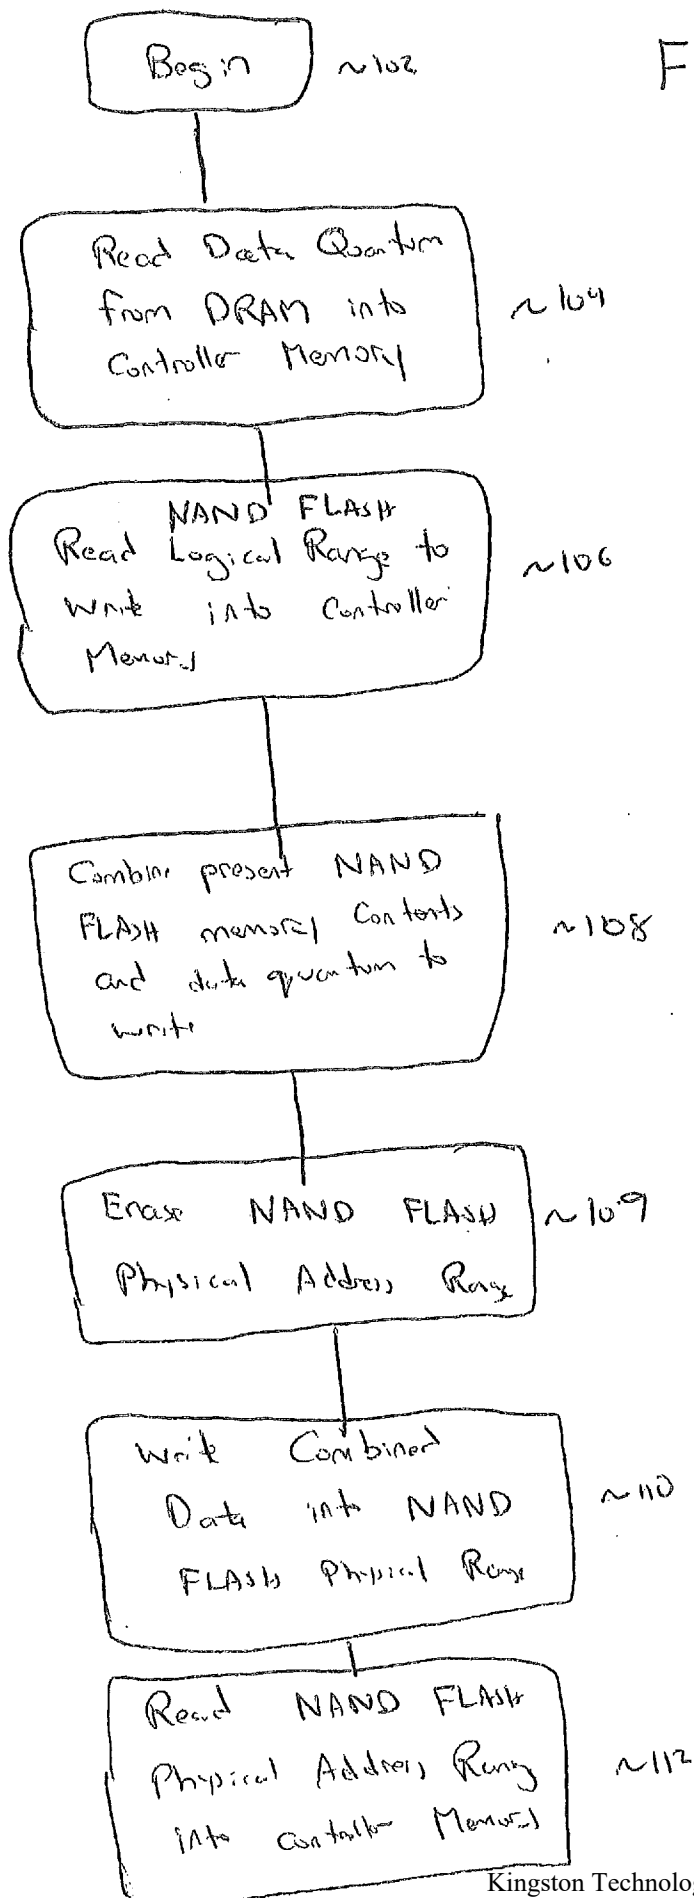 Begin ~102
F
Read Data Quantum
from DRAM into ~104
Controller Memory
NAND FLASH
Read Logical Range to ~106
Write into Controller
Memory
Combine present NAND
FLASH memory Contents ~108
and data quantum to
write
Erase NAND FLASH ~109
Physical Address Range
Write Combined
Data into NAND ~110
FLASH Physical Range
Read NAND FLASH
Physical Address Range ~112
into controller Memory
Kingston Technolo